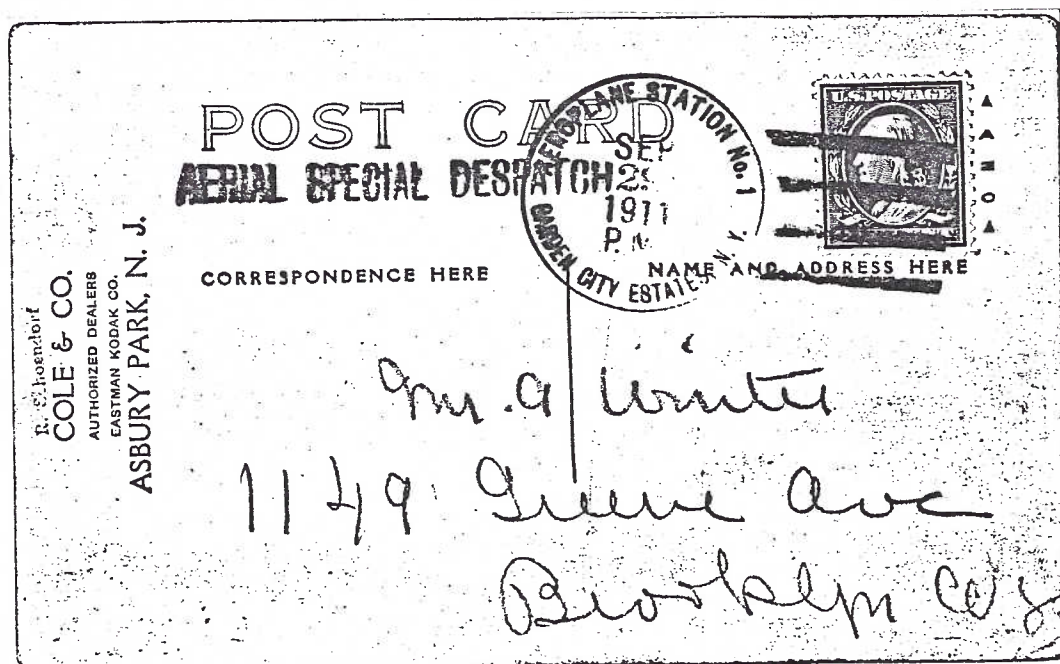 POST CARD
AERIAL SPECIAL DESPATCH
AEROPLANE STATION No. 1
SEP
1911
P.M.
GARDEN CITY ESTATES, N.Y.
U.S. POSTAGE
CORRESPONDENCE HERE
NAME AND ADDRESS HERE
COLE & CO.
AUTHORIZED DEALERS
EASTMAN KODAK CO.
ASBURY PARK, N. J.
Mr. A Winter
1149 Greene Ave
Brooklyn